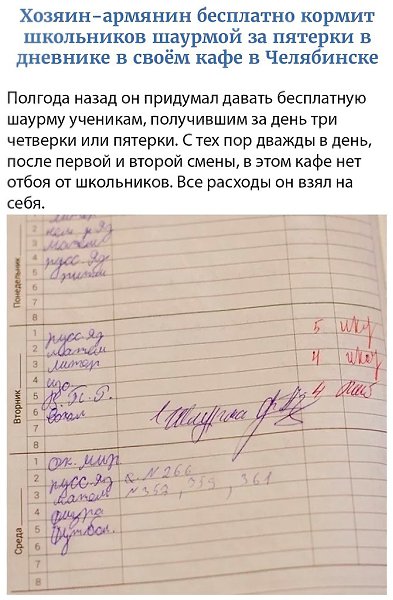 Хозяин-армянин бесплатно кормит
школьников шаурмой за пятерки в
дневнике в своём кафе в Челябинске
Полгода назад он придумал давать бесплатную
шаурму ученикам, получившим за день три
четверки или пятерки. С тех пор дважды в день,
после первой и второй смены, в этом кафе нет
отбоя от школьников. Все расходы он взял на
себя.
Понедельник
2
3 матем
4 русс. яз
5
6
7
8
Вторник
1 русс. яз 5
2 матем
3 литер 4
4 изо
5 4
6 вокал
7 1 Шаурма
8
Среда
1 ок. мир
2 русс. яз № 266
3 матем № 352, 353, 361
4 физра
5 футбол
6
7
8